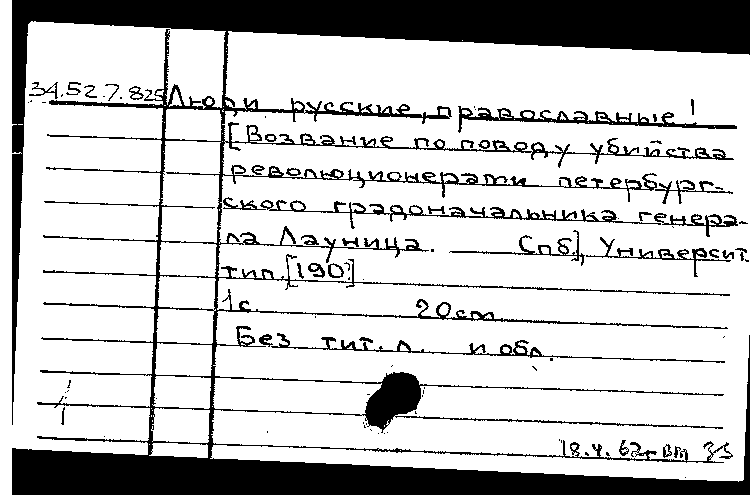 34.52.7.825 Люди русские, православные!
[Воззвание по поводу убийства
революционерами петербург-
ского градоначальника генера-
ла Лауница. Спб], Университ.
тип. [190?]
1с. 20cm
Без тит. л. и обл.
18.4.62г